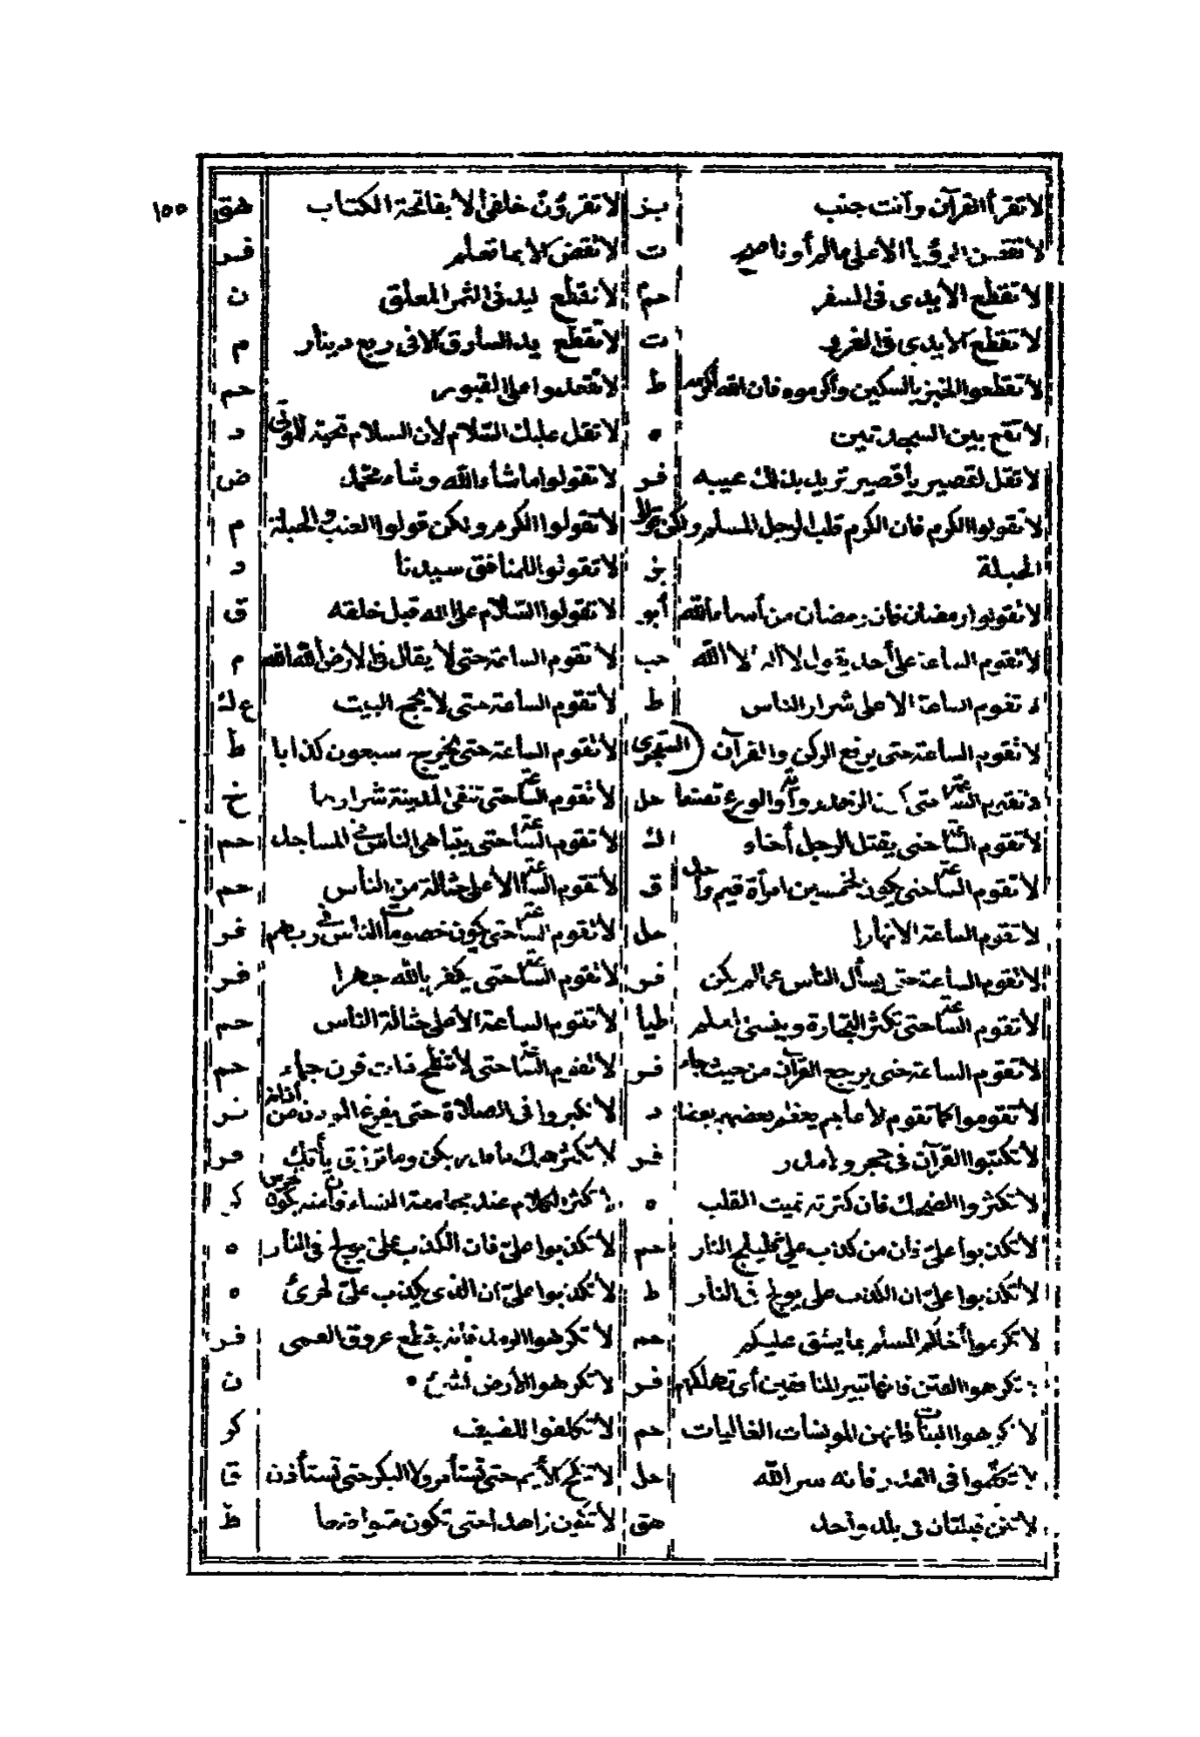 ١٥٥
لا تقرأ القرآن وأنت جنب بز لا تقرؤن خلفى الا بفاتحة الكتاب هق
لا تقصن الرؤيا الا على عالم أو ناصح ت لا تقض الا بما تعلم فر
لا تقطع الأيدى فى السفر حم لا تقطع ليد فى الثمر المعلق ن
لا تقطع الأيدى فى الغزو ت لا تقطع يد السارق الا فى ربع دينار م
لا تقطعوا الخبز بالسكين وأكرموه فان الله أكرمه ط لا تقعدوا على القبور حم
لا تقع بين السجدتين ه لا تقل عليك السلام لأن السلام تحية الموتى د
لا تقل لقصير يا قصير تريد بذلك عيبه فر لا تقولوا ما شاء الله وشاء محمد ض
لا تقولوا الكرم فان الكرم قلب الرجل المسلم ولكن قولوا لا تقولوا الكرم ولكن قولوا العنب والحبلة م
الحبلة بز لا تقولوا للمنافق سيدنا د
لا تقولوا رمضان فان رمضان من أسماء الله أبو لا تقولوا السلام على الله قبل خلقه ق
لا تقوم الساعة على أحد يقول لا اله الا الله حب لا تقوم الساعة حتى لا يقال فى الارض الله الله م
لا تقوم الساعة الا على شرار الناس ط لا تقوم الساعة حتى لا يحج البيت ع ك
لا تقوم الساعة حتى يرفع الركن والقرآن (السجزى لا تقوم الساعة حتى يخرج سبعون كذابا ط
لا تقوم الساعة حتى الزهد رواية والورع تصنعا حل لا تقوم الساعة حتى تنفى المدينة شرارها خ
لا تقوم الساعة حتى يقتل الرجل أخاه ك لا تقوم الساعة حتى يتباهى الناس فى المساجد حم
لا تقوم الساعة حتى يكون لخمسين امرأة قيم واحد ق لا تقوم الساعة الا على حثالة من الناس حم
لا تقوم الساعة الا نهارا حل لا تقوم الساعة حتى يكون خصومات الناس فى ربهم فر
لا تقوم الساعة حتى يسأل الناس عما لم يكن فر لا تقوم الساعة حتى يكفر بالله جهرا فر
لا تقوم الساعة حتى تكثر التجارة ويفشى العلم طيا لا تقوم الساعة الا على حثالة الناس حم
لا تقوم الساعة حتى يرجع القرآن من حيث جاء فر لا تقوم الساعة حتى لا تنطح ذات قرن جماء حم
لا تقوموا كما تقوم لأعاجم يعظم بعضهم بعضا د لا تكبروا فى الصلاة حتى يفرغ المؤذن من أذانه
لا تكتبوا القرآن فى حجر و لا مدر فر لا تكثر همك ما يكن وما ترزق يأتك
لا تكثروا الضحك فان كثرته تميت القلب ه لا تكثر الكلام عند مجامعة النساء فان منه يكون الخرس كر
لا تكذبوا على فان من كذب على فليلج النار حم لا تكذبوا على فان الكذب على يولج فى النار ه
لا تكذبوا على ان الكذب على يولج فى النار ط لا تكذبوا على ان الذى يكذب على لجرئ ه
لا تكرموا أخاكم المسلم بما يشق عليكم حم لا تكرهوا الرمد فانه يقطع عروق العمى فر
لا تكرهوا الفتن فانها تبير المنافقين أى تهلكهم فر لا تكروا الأرض بشئ ن
لا تكرهوا البنات فانهن المونسات الغاليات حم لا تكلفوا للضيف كر
لا تكلموا فى القدر فانه سر الله حل لا تنكح الأيم حتى تستأمر ولا البكر حتى تستأذن ق
لا تكن قبلتان فى بلد واحد هق لا تكون زاهدا حتى تكون متواضعا ط